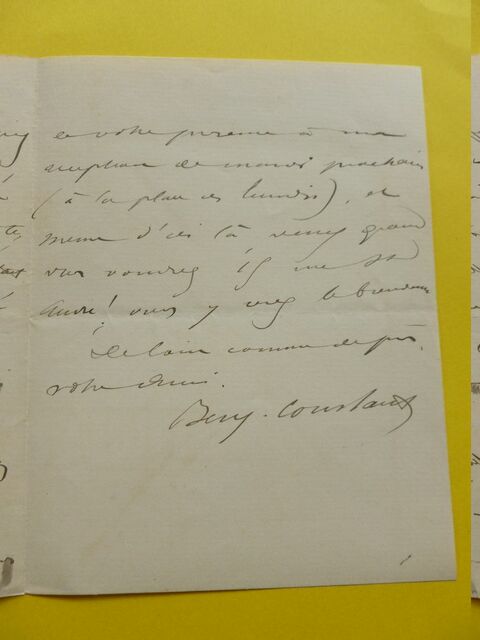 et votre présence à ma
réception de mardi prochain
(à la place des lundis), et
même d'ici là, venez quand
vous voudrez 15 rue St
André! vous y serez le bienvenu
De loin comme de près,
votre ami.
Benj. Constant